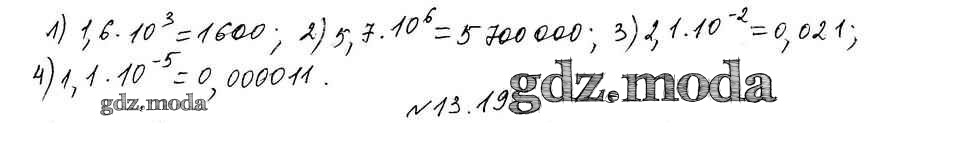 1) 1,6·10³=1600; 2) 5,7·10⁶=5 700 000; 3) 2,1·10⁻²=0,021;
4) 1,1·10⁻⁵=0,000011.
gdz.moda
№13.19 gdz.moda